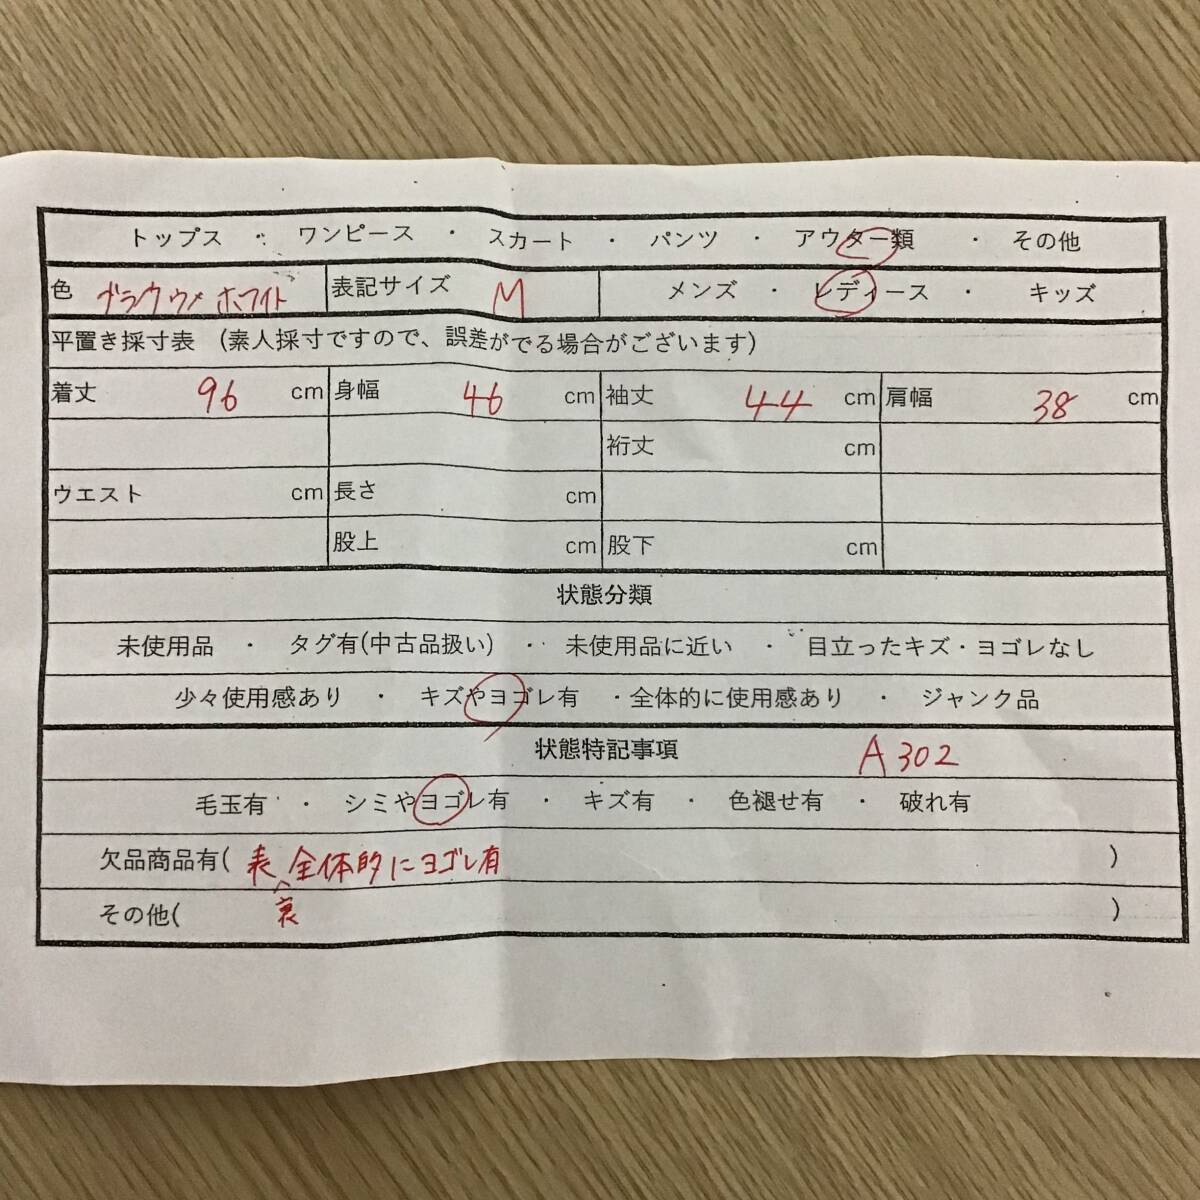 トップス ・ ワンピース ・ スカート ・ パンツ ・ アウター類 ・ その他
色 ブラウン ホワイト 表記サイズ M メンズ ・ レディース ・ キッズ
平置き採寸表 (素人採寸ですので、誤差がでる場合がございます)
着丈 96 cm 身幅 46 cm 袖丈 44 cm 肩幅 38 cm
裄丈 cm
ウエスト cm 長さ cm
股上 cm 股下 cm
状態分類
未使用品 ・ タグ有(中古品扱い) ・ 未使用品に近い ・ 目立ったキズ・ヨゴレなし
少々使用感あり ・ キズやヨゴレ有 ・全体的に使用感あり ・ ジャンク品
状態特記事項 A302
毛玉有 ・ シミやヨゴレ有 ・ キズ有 ・ 色褪せ有 ・ 破れ有
欠品商品有( 表 全体的にヨゴレ有 )
その他( 裏 )